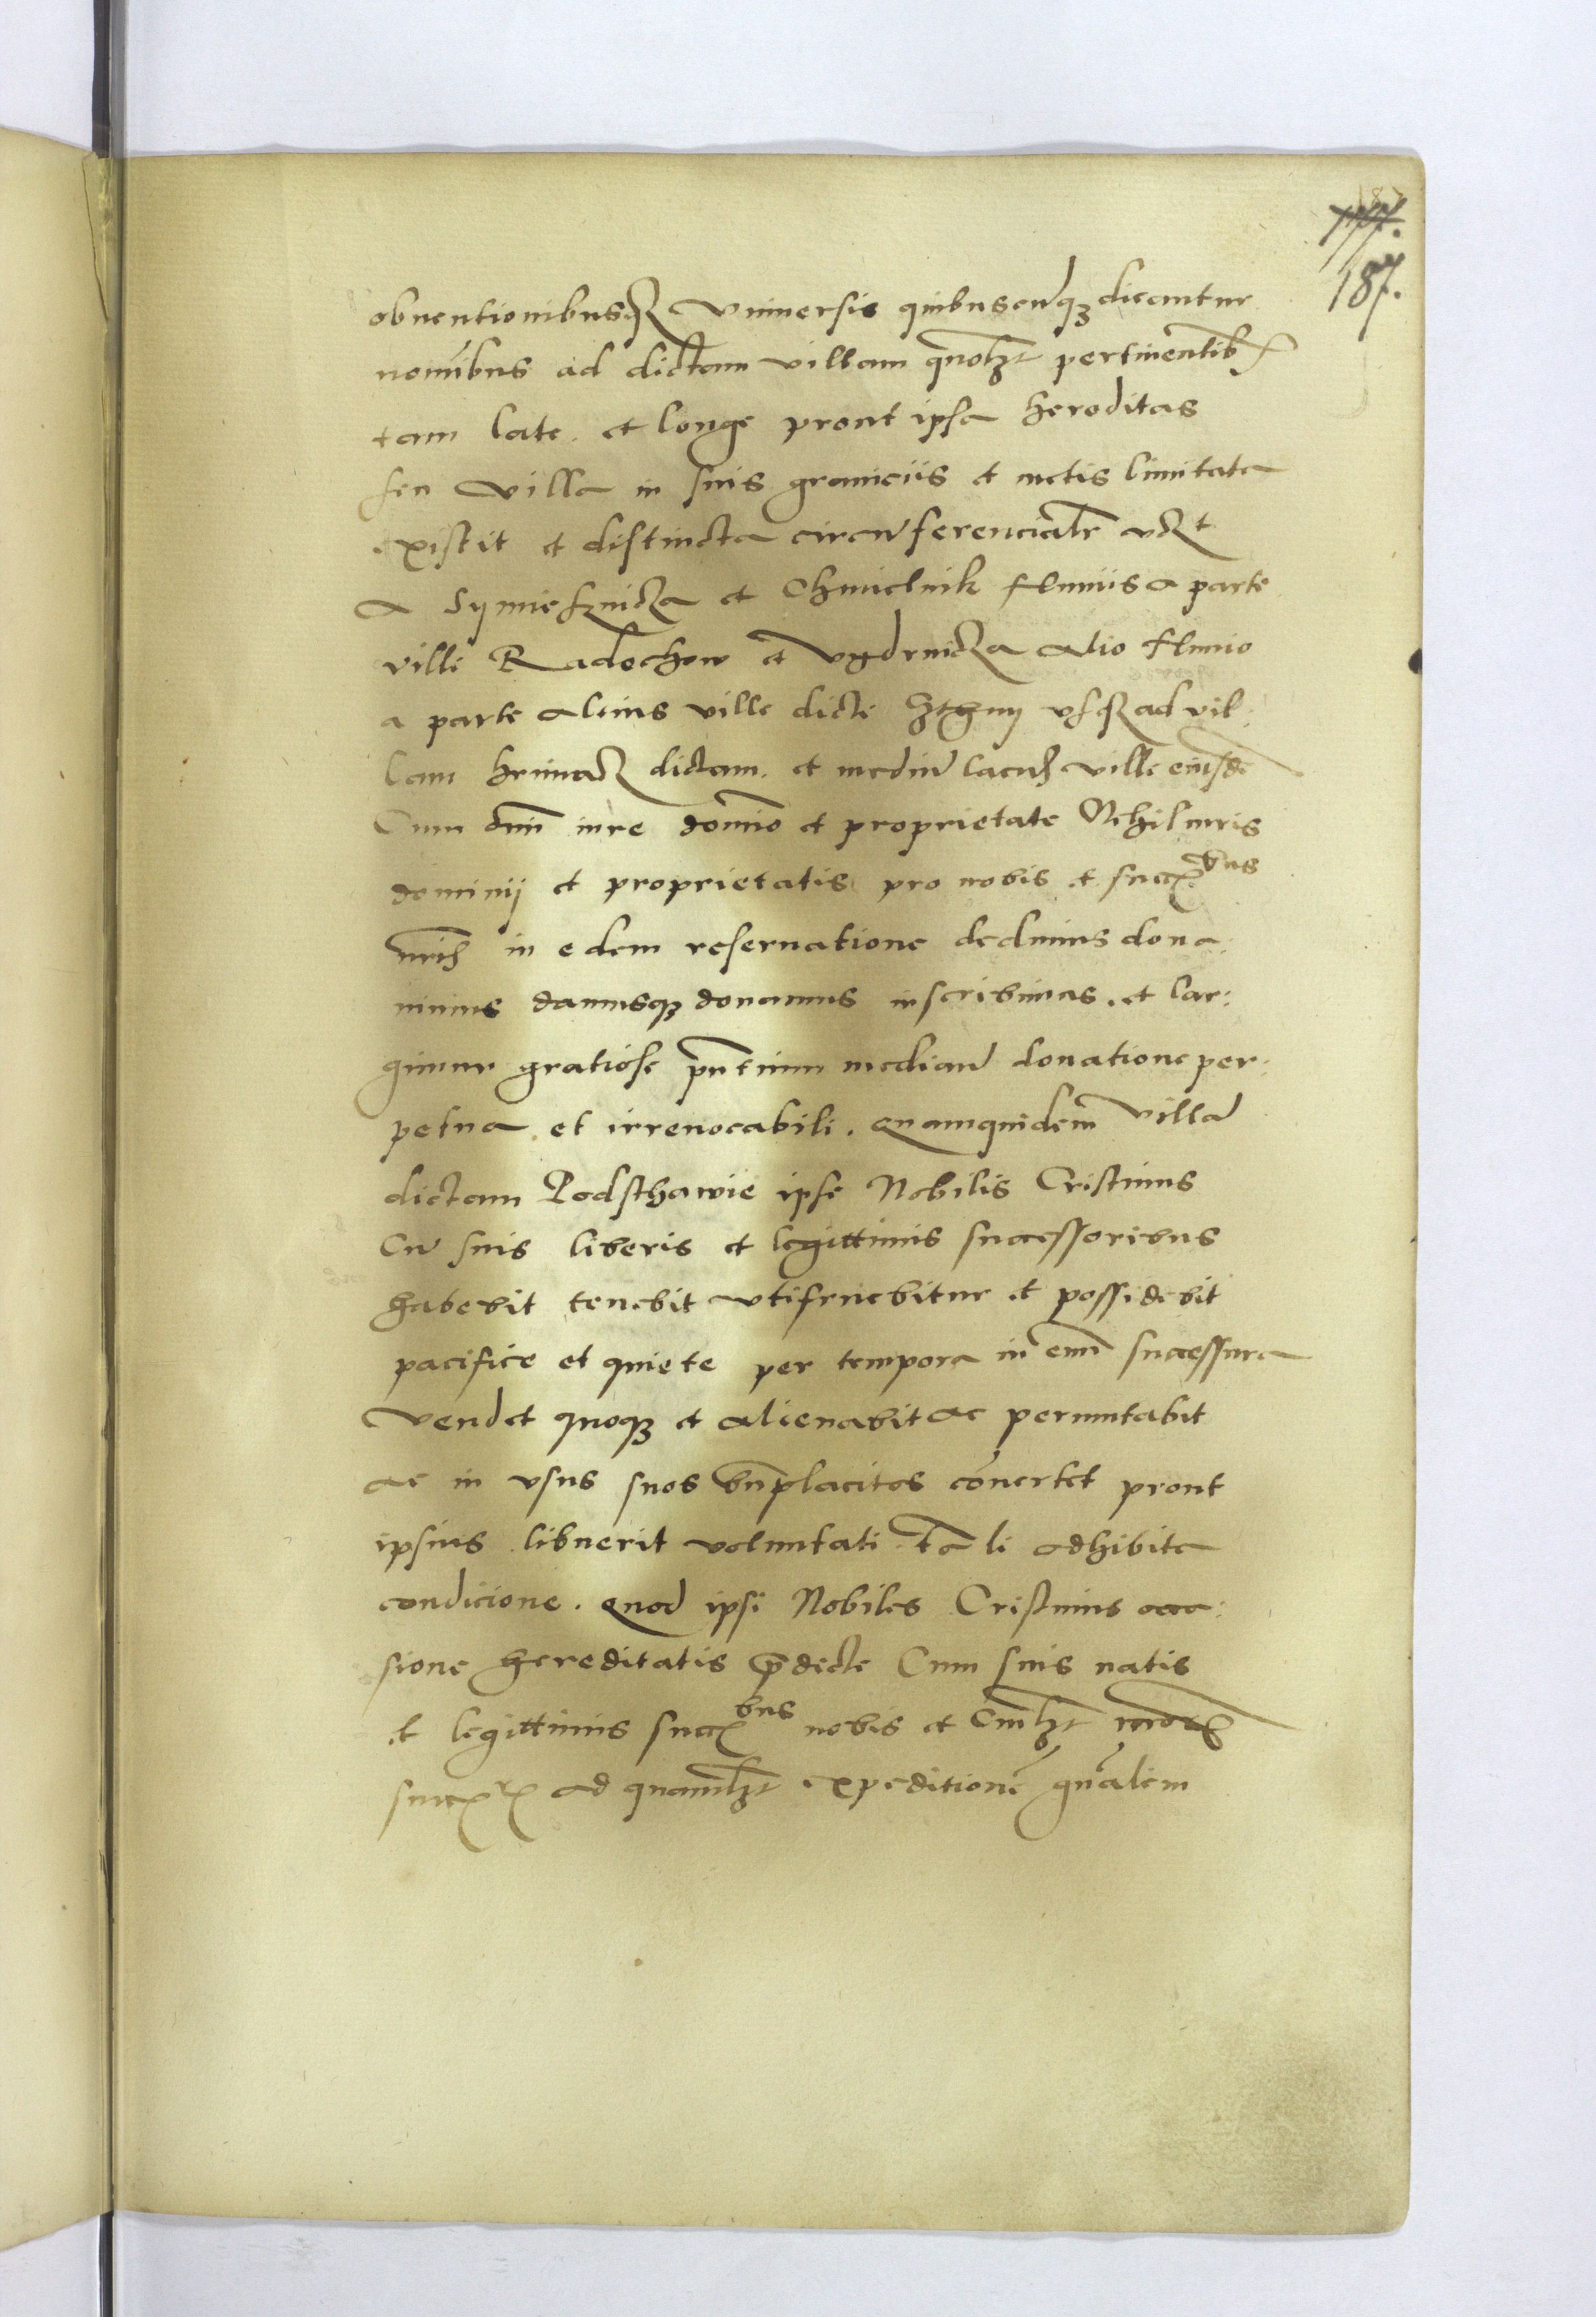 187.
obuentionibusqȝ vniuersis quibuscūqȝ dicantur
noībus ad dictam villam quolȝt pertinentibꝰ
tam late et longe prout ipsa hereditas
seu villa in suis graniciis et metis limitata
existit et distincta circūferencialr vȝt
a Symiesznicza et Chmielnik fluuiis a parte
ville Radochow et Vgdrnicza alio fluuio
a parte alcius ville dicte usqȝ ad vil
lam dictam et mediū lacus ville eiusdē
Cum oī iure domīo et proprietate Nihil iuris
dominij et proprietatis pro nobis et succꝝbus
nrīs in edem reseruatione dedimus dona
uimus damusqȝ donamus inscribimus et lar
gimur gratiose pn̄tium mediañ donatione per
petua et irreuocabili. quamquidem villā
dictam Podsthawie ipse Nobilis Cristinus
Cū suis liberis et legittimis successoribus
habebit tenebit vtifruebitur et possidebit
pacifice et quiete per tempora in euū successura
Vendet quoqȝ et alienabit ac permutabit
ac in vsus suos bn̄placitos cōuertet prout
ipsius libuerit voluntati tali adhibita
condicione. quod ipsi Nobiles Cristinus occa
sione hereditatis p̄dicte Cum suis natis
et legittimis succꝝbus nobis et
succꝝ ad quamlȝt expeditionē gn̄alem